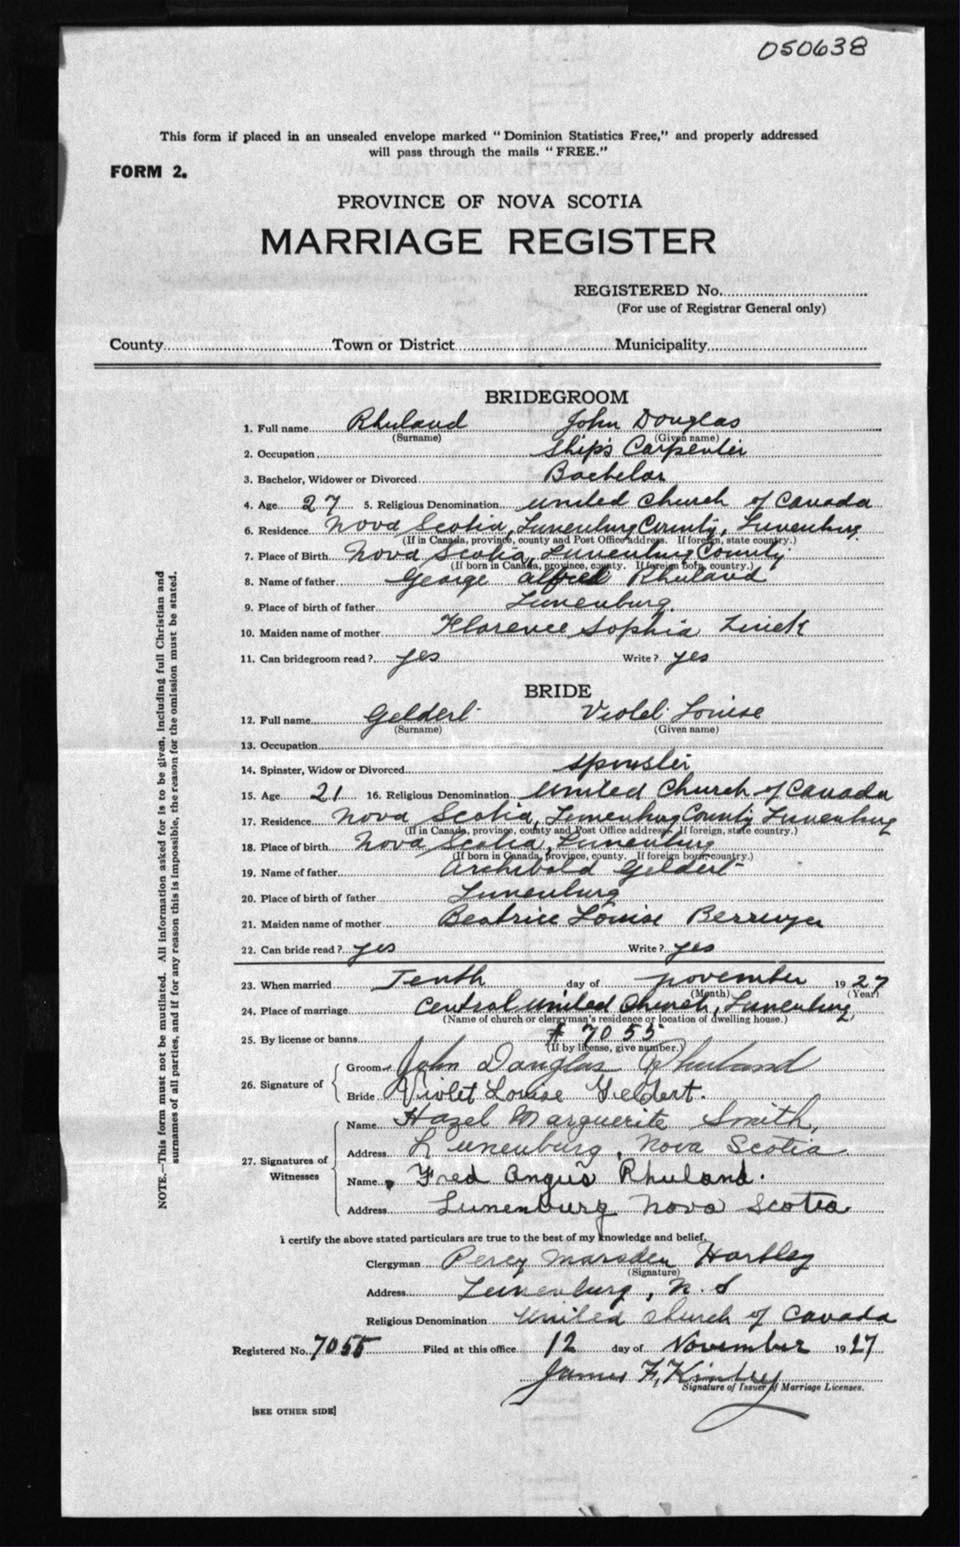 050638
This form if placed in an unsealed envelope marked "Dominion Statistics Free," and properly addressed
will pass through the mails "FREE."
FORM 2.
PROVINCE OF NOVA SCOTIA
MARRIAGE REGISTER
REGISTERED No.
(For use of Registrar General only)
County Town or District Municipality
BRIDEGROOM
1. Full name Rhuland John Douglas
(Surname) (Given name)
2. Occupation Ship's Carpenter
3. Bachelor, Widower or Divorced Bachelor
4. Age 27 5. Religious Denomination United Church of Canada
6. Residence Nova Scotia, Lunenburg County, Lunenburg
(If in Canada, province, county and Post Office address. If foreign, state country.)
7. Place of Birth Nova Scotia, Lunenburg County
(If born in Canada, province, county. If foreign born, country.)
8. Name of father George Alfred Rhuland
9. Place of birth of father Lunenburg
10. Maiden name of mother Florence Sophia Zinck
11. Can bridegroom read? yes Write? yes
BRIDE
12. Full name Geldert Violet Louise
(Surname) (Given name)
13. Occupation
14. Spinster, Widow or Divorced spinster
15. Age 21 16. Religious Denomination United Church of Canada
17. Residence Nova Scotia, Lunenburg County Lunenburg
(If in Canada, province, county and Post Office address. If foreign, state country.)
18. Place of birth Nova Scotia, Lunenburg
(If born in Canada, province, county. If foreign born, country.)
19. Name of father Archibald Geldert
20. Place of birth of father Lunenburg
21. Maiden name of mother Beatrice Louise
22. Can bride read? yes Write? yes
23. When married Tenth day of november 1927
(Month) (Year)
24. Place of marriage Central United Church, Lunenburg
(Name of church or clergyman's residence or location of dwelling house.)
25. By license or banns # 7055
(If by license, give number.)
26. Signature of
Groom John Douglas Rhuland
Bride Violet Louise Geldert.
27. Signatures of Witnesses
Name Hazel Marguerite Smith,
Address Lunenburg, Nova Scotia
Name Fred Angus Rhuland.
Address Lunenburg Nova Scotia
I certify the above stated particulars are true to the best of my knowledge and belief.
Clergyman Percy Marsden Hartley
(Signature)
Address Lunenburg, N.S
Religious Denomination United Church of Canada
Registered No. 7055 Filed at this office 12 day of November 1927
James F. Kinley
Signature of Issuer of Marriage Licenses.
[SEE OTHER SIDE]
NOTE.—This form must not be mutilated. All information asked for is to be given, including full Christian and
surnames of all parties, and if for any reason this is impossible, the reason for the omission must be stated.